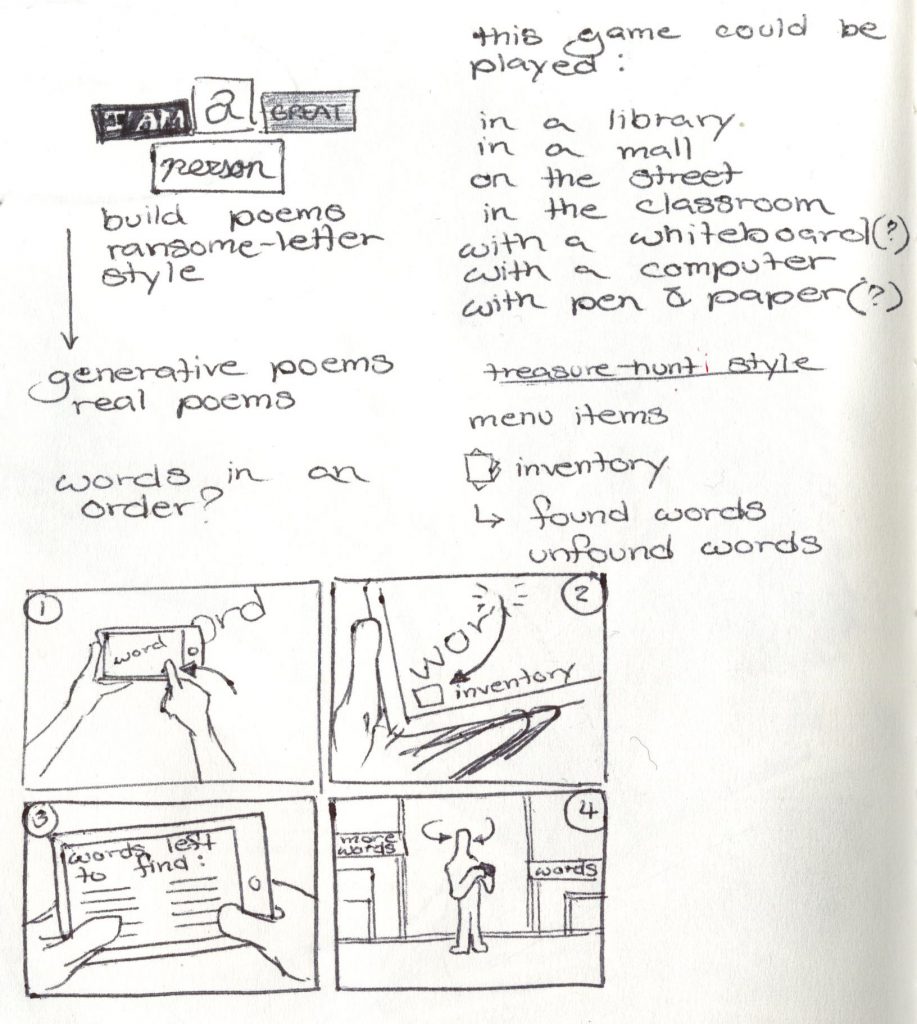 I AM a GREAT
person
build poems
ransome-letter
style
generative poems
real poems
words in an
order?
this game could be
played:
in a library.
in a mall
on the street
in the classroom
with a whiteboard(?)
with a computer
with pen & paper(?)
treasure-hunt style
menu items
inventory
↳ found words
unfound words
1
ord
word
2
word
inventory
3
words left
to find:
4
more
words
words